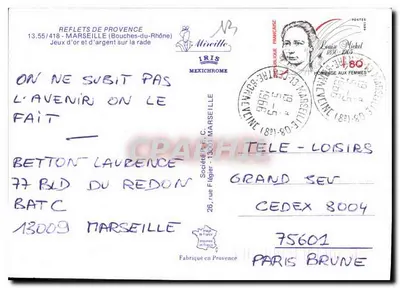 REFLETS DE PROVENCE
13.55/418 - MARSEILLE (Bouches-du-Rhône)
Jeux d'or et d'argent sur la rade
Mireille
IRIS
MEXICHROME
ON NE SUBIT PAS
L'AVENIR ON LE
FAIT
BETTON LAURENCE
77 BLD DU REDON
BAT C
13009 MARSEILLE
26, rue Flégier - 13001 MARSEILLE
Fabriqué en Provence
RÉPUBLIQUE FRANÇAISE
POSTES
Louise Michel
1,80
HOMMAGE AUX FEMMES
1986
TELE-LOISIRS
GRAND SEV
CEDEX 8004
75601
PARIS BRUNE
Cartophilie